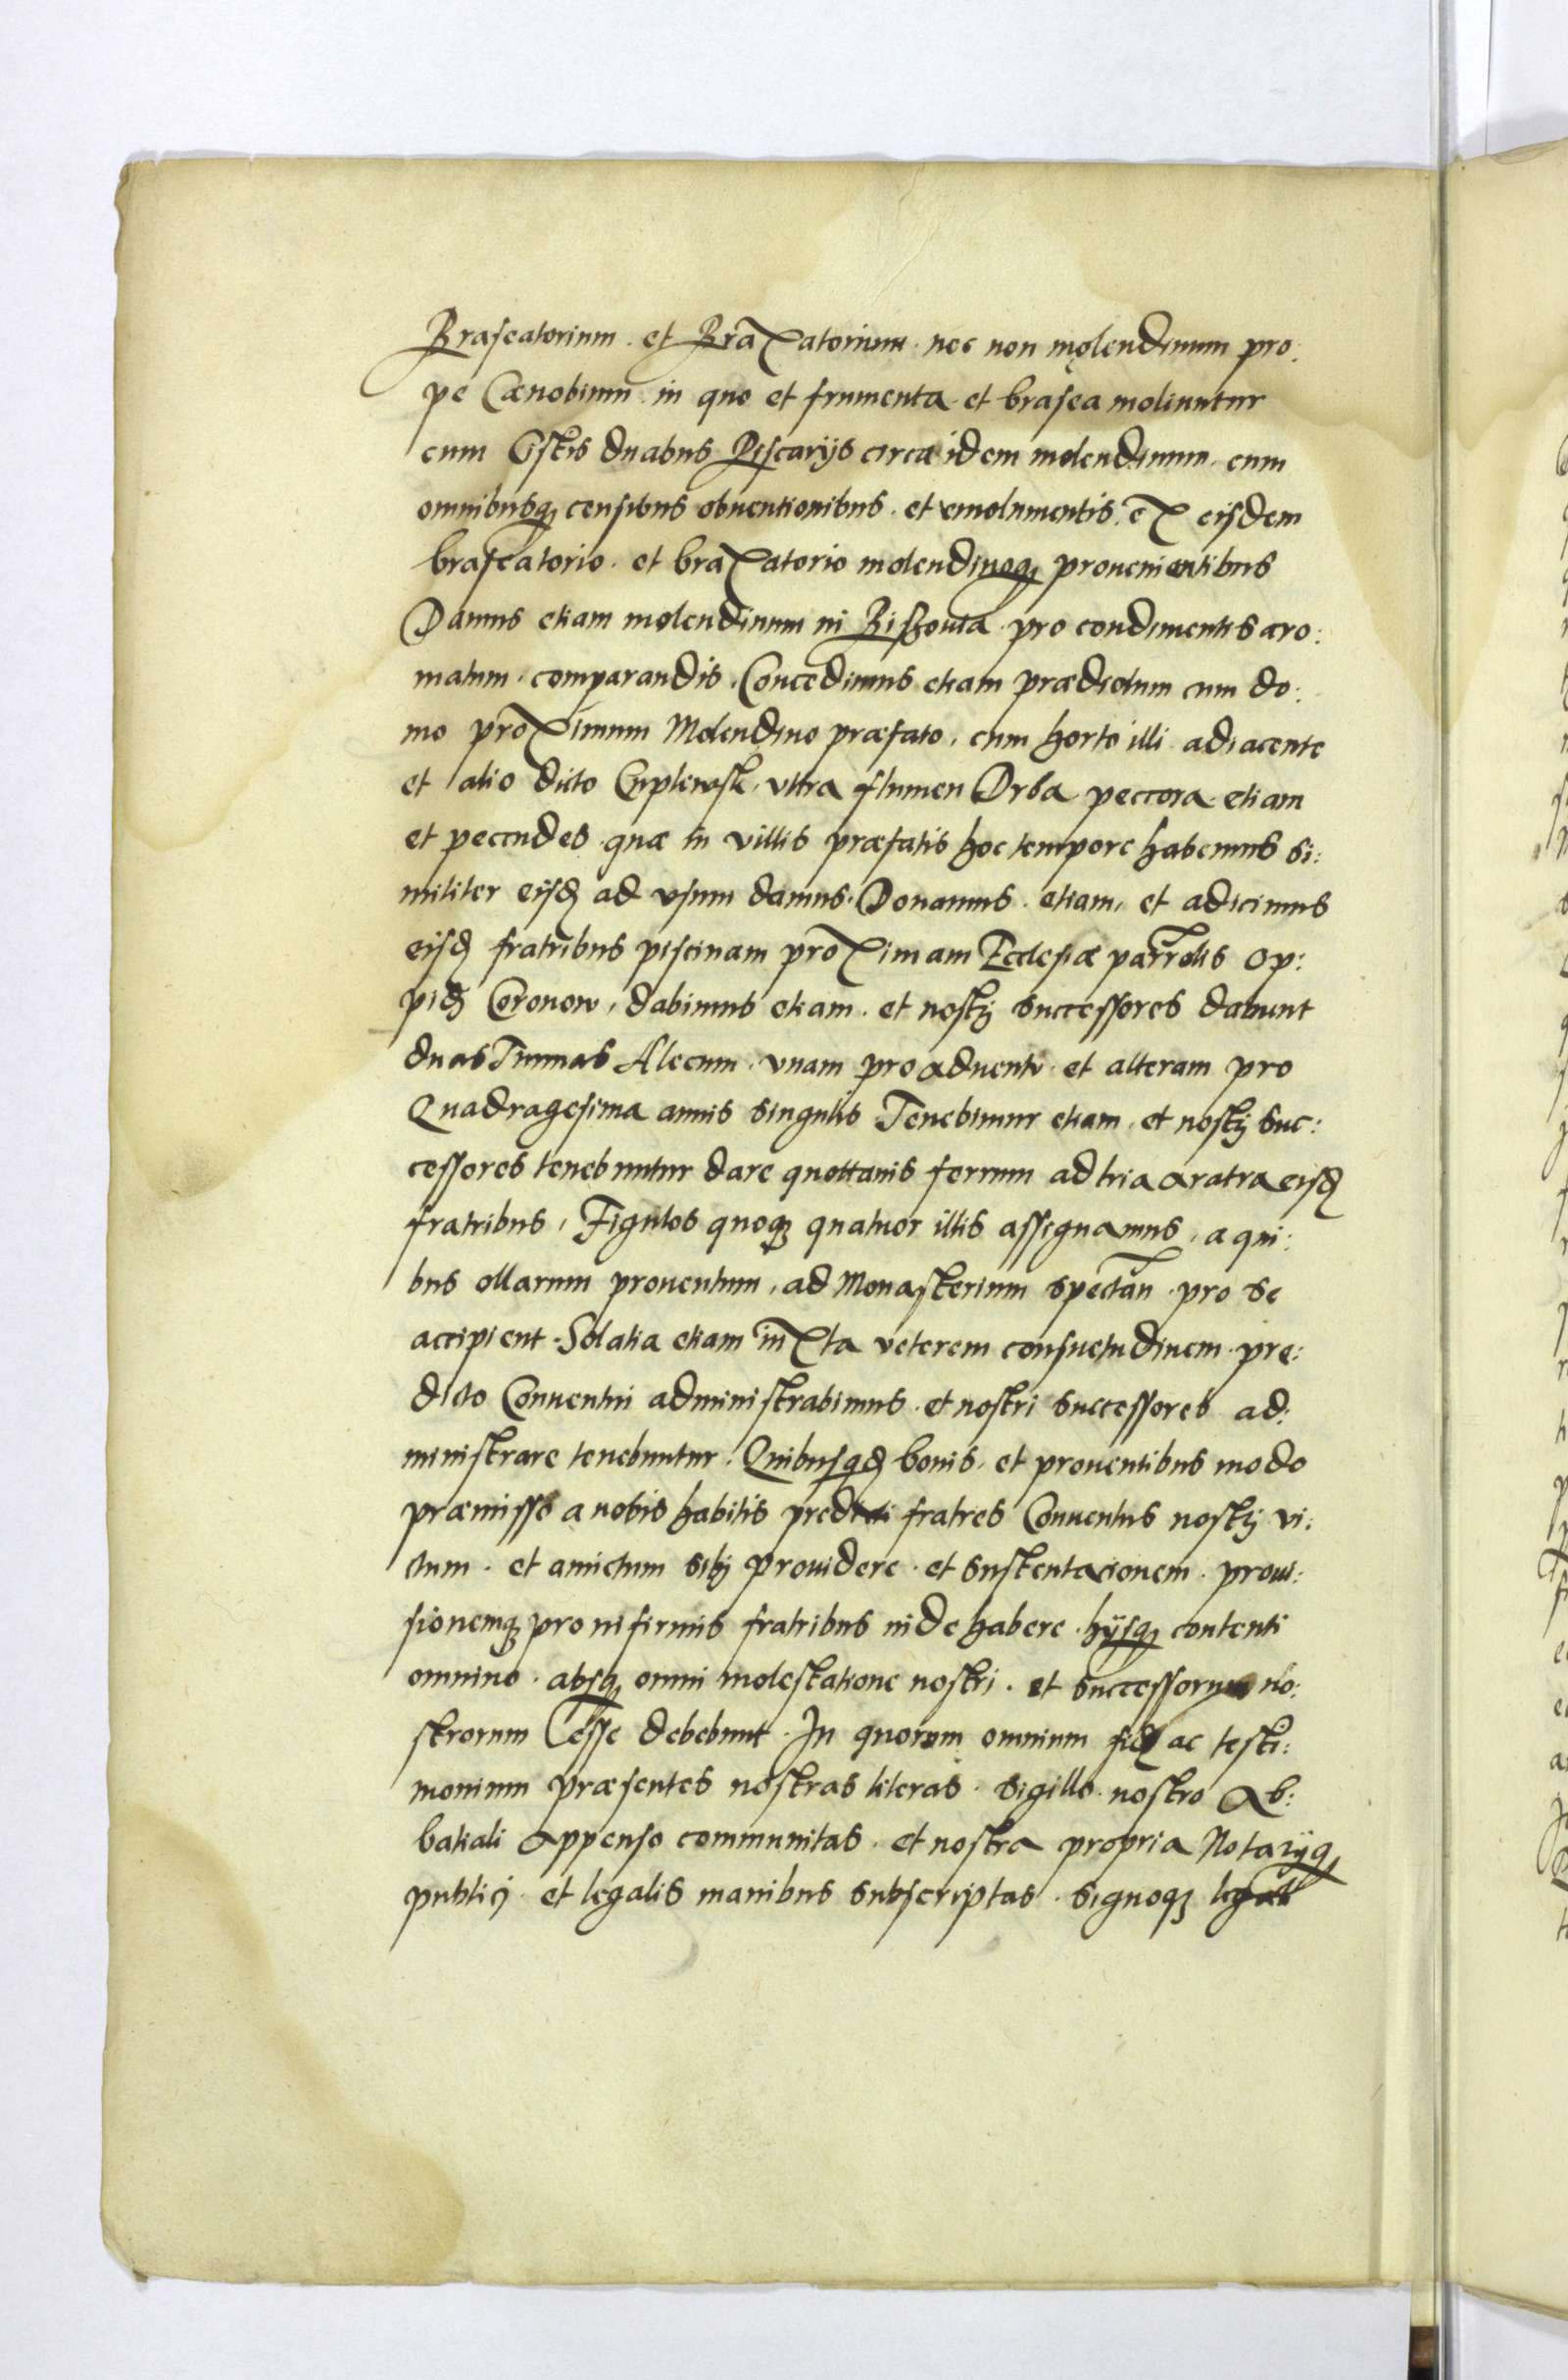 Braseatorium. et Braxatorium. nec non molendinum pro:
pe Cœnobium. in quo et frumenta et brasea moliuntur
cum Cistis duabus Piscarijs circa idem molendinum. cum
omnibusq; censibus obuentionibus. et emolumentis. ex eisdem
braseatorio. et braxatorio molendinoq; prouenientibus
Damus etiam molendinum in pro condimentis aro:
matum. comparandis. Concedimus etiam prædiolum cum do:
mo proximum Molendino præfato, cum horto illi adiacente
et alio dicto vltra flumen Drba peccora etiam
et pecudes quæ in villis præfatis hoc tempore habemus si:
militer eisd ad vsum damus. Donamus. etiam, et adicimus
eisd fratribus piscinam proximam Ecclesiæ parrolis Op:
pid Coronow, dabimus etiam. et nostrj successores dabunt
duas Tunnas Alecum. vnam pro aduentu et alteram pro
Quadragesima annis singulis Tenebimur etiam, et nostrj suc:
cessores tenebuntur dare quottanis ferrum ad tria aratra eisd
fratribus, Figulos quoq; quatuor illis assignamus, a qui:
bus ollarum prouentum, ad Monasterium spectan. pro se
accipient. Solatia etiam iuxta veterem consuetudinem pre:
dicto Conuentui administrabimus. et nostri successores ad:
ministrare tenebuntur. Quibusqd bonis, et prouentibus modo
præmisso a nobis habitis predicti fratres Conuentus nostrj vi:
ctum. et amictum sibj prouidere. et sustentacionem. proui:
sionemq; pro infirmis fratribus inde habere. hijsq; contenti
omnino. absq; omni molestatione nostri. et successorum no:
strorum esse debebunt. In quorum omnium fid ac testi:
monium præsentes nostras literas. sigillo nostro Ab:
batiali Appenso communitas. et nostra propria Notarijq;
publicj. et legalis manibus subscriptas. signoq;